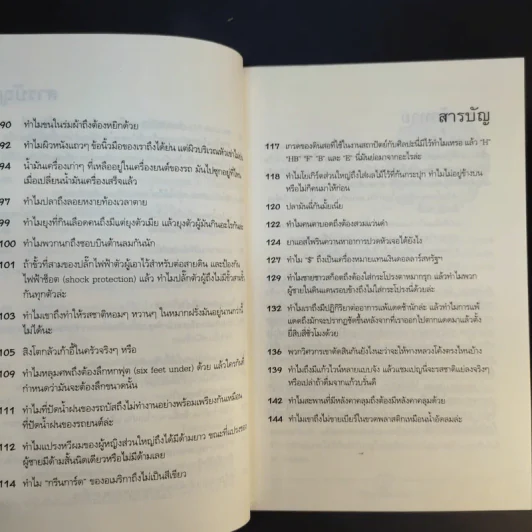 90 ทำไมขนในร่มผ้าถึงต้องหยิกด้วย
92 ทำไมผิวหนังแถวๆ ข้อนิ้วมือของเราถึงได้ย่น แต่ผิวบริเวณหัวเข่าไม่
94 น้ำมันเครื่องเก่าๆ ที่เหลืออยู่ในเครื่องยนต์ของรถ มันไปซุกอยู่ที่ไหน
เมื่อเปลี่ยนน้ำมันเครื่องเสร็จแล้ว
97 ทำไมปลาถึงลอยหงายท้องเวลาตาย
99 ทำไมยุงที่กินเลือดคนถึงมีแต่ยุงตัวเมีย แล้วยุงตัวผู้มันกินอะไรกัน
100 ทำไมพวกนกถึงชอบบินต้านลมกันนัก
101 ถ้าขั้วที่สามของปลั๊กไฟฟ้าตัวผู้เอาไว้สำหรับต่อสายดิน และป้องกัน
ไฟฟ้าช็อต (shock protection) แล้ว ทำไมปลั๊กตัวผู้ถึงไม่มีขั้วสาม
กันทุกตัวล่ะ
103 ทำไมเขาถึงทำให้รสชาติหอมๆ หวานๆ ในหมากฝรั่งมันอยู่นานกว่านี้
ไม่ได้นะ
105 สิงโตกลัวเก้าอี้ในครัวจริงๆ หรือ
109 ทำไมหลุมศพถึงต้องลึกหกฟุต (six feet under) ด้วย แล้วใครกันที่
กำหนดว่ามันจะต้องลึกขนาดนั้น
111 ทำไมที่ปัดน้ำฝนของรถบัสถึงไม่ทำงานอย่างพร้อมเพรียงกันเหมือน
ที่ปัดน้ำฝนของรถยนต์ล่ะ
112 ทำไมแปรงหวีผมของผู้หญิงส่วนใหญ่ถึงได้มีด้ามยาว ขณะที่แปรงของ
ผู้ชายมีด้ามสั้นนิดเดียวหรือไม่มีด้ามเลย
114 ทำไม "กรีนการ์ด" ของอเมริกาถึงไม่เป็นสีเขียว
สารบัญ
117 เกรดของดินสอที่ใช้ในงานสถาปัตย์กับศิลปะนี่มีไว้ทำไมเหรอ แล้ว "H"
"HB" "F" "B" และ "E" นี่มันย่อมาจากอะไรล่ะ
118 ทำไมโยเกิร์ตส่วนใหญ่ถึงใส่ผลไม้ไว้ที่ก้นกระปุก ทำไมไม่อยู่ข้างบน
หรือไม่ก็คนมาให้ก่อน
120 ปลามันฉี่กันมั้ยเนี่ย
122 ทำไมคนตาบอดถึงต้องสวมแว่นดำ
124 ยาแอสไพรินควานหาอาการปวดหัวเจอได้ยังไง
127 ทำไม "$" ถึงเป็นเครื่องหมายแทนเงินดอลลาร์สหรัฐฯ
129 ทำไมชายชาวสก็อตถึงต้องใส่กระโปรงตาหมากรุก แล้วทำไมพวก
ผู้ชายในดินแดนรอบข้างถึงไม่ใส่กระโปรงนี่ด้วยล่ะ
132 ทำไมเราถึงมีปฏิกิริยาต่ออาการแพ้แดดช้านักล่ะ แล้วทำไมการแพ้
แดดถึงมักจะปรากฏชัดขึ้นหลังจากที่เราออกไปตากแดดมาแล้วตั้ง
ยี่สิบสี่ชั่วโมงด้วย
136 พวกวิศวกรเขาตัดสินกันยังไงนะว่าจะให้ทางหลวงโค้งตรงไหนบ้าง
139 ทำไมถึงมีแก้วไวน์หลายแบบจัง แล้วแชมเปญนี่จะรสชาติแย่ลงจริงๆ
หรือเปล่าถ้าดื่มจากแก้วบรั่นดี
142 ทำไมสะพานที่มีหลังคาคลุมถึงต้องมีหลังคาคลุมด้วย
144 ทำไมเขาถึงไม่ขายเบียร์ในขวดพลาสติกเหมือนน้ำอัดลมล่ะ